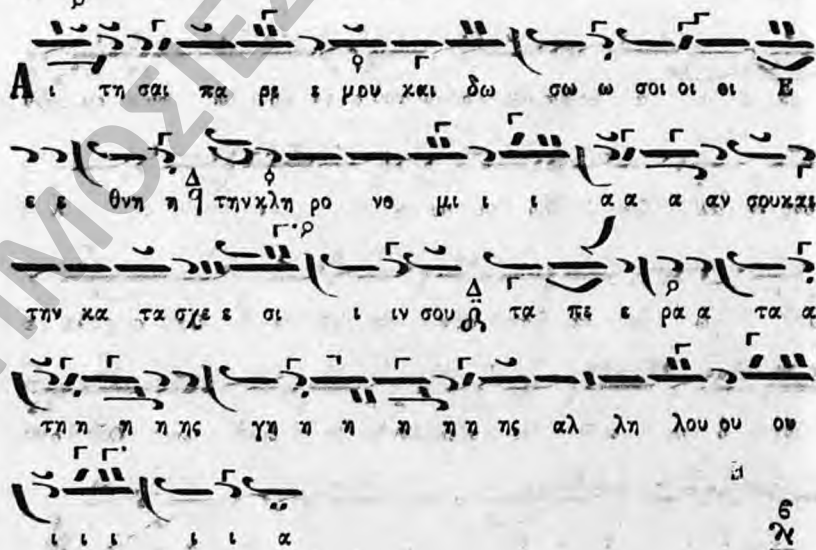 Α ι τη σαι πα ρε ε μου και δω σω ω σοι οι οι Ε
ε ε θνη η Δ την κλη ρο νο μι ι ι α α α αν σου και
την κα τα σχε ε σι ι ιν σου Δ τα πε ε ρα α τα α
τη η η η ης γη η η η η η ης αλ λη λου ου ου
ι ι ι ι ι α
ΗΜΟΣΙΕΣ